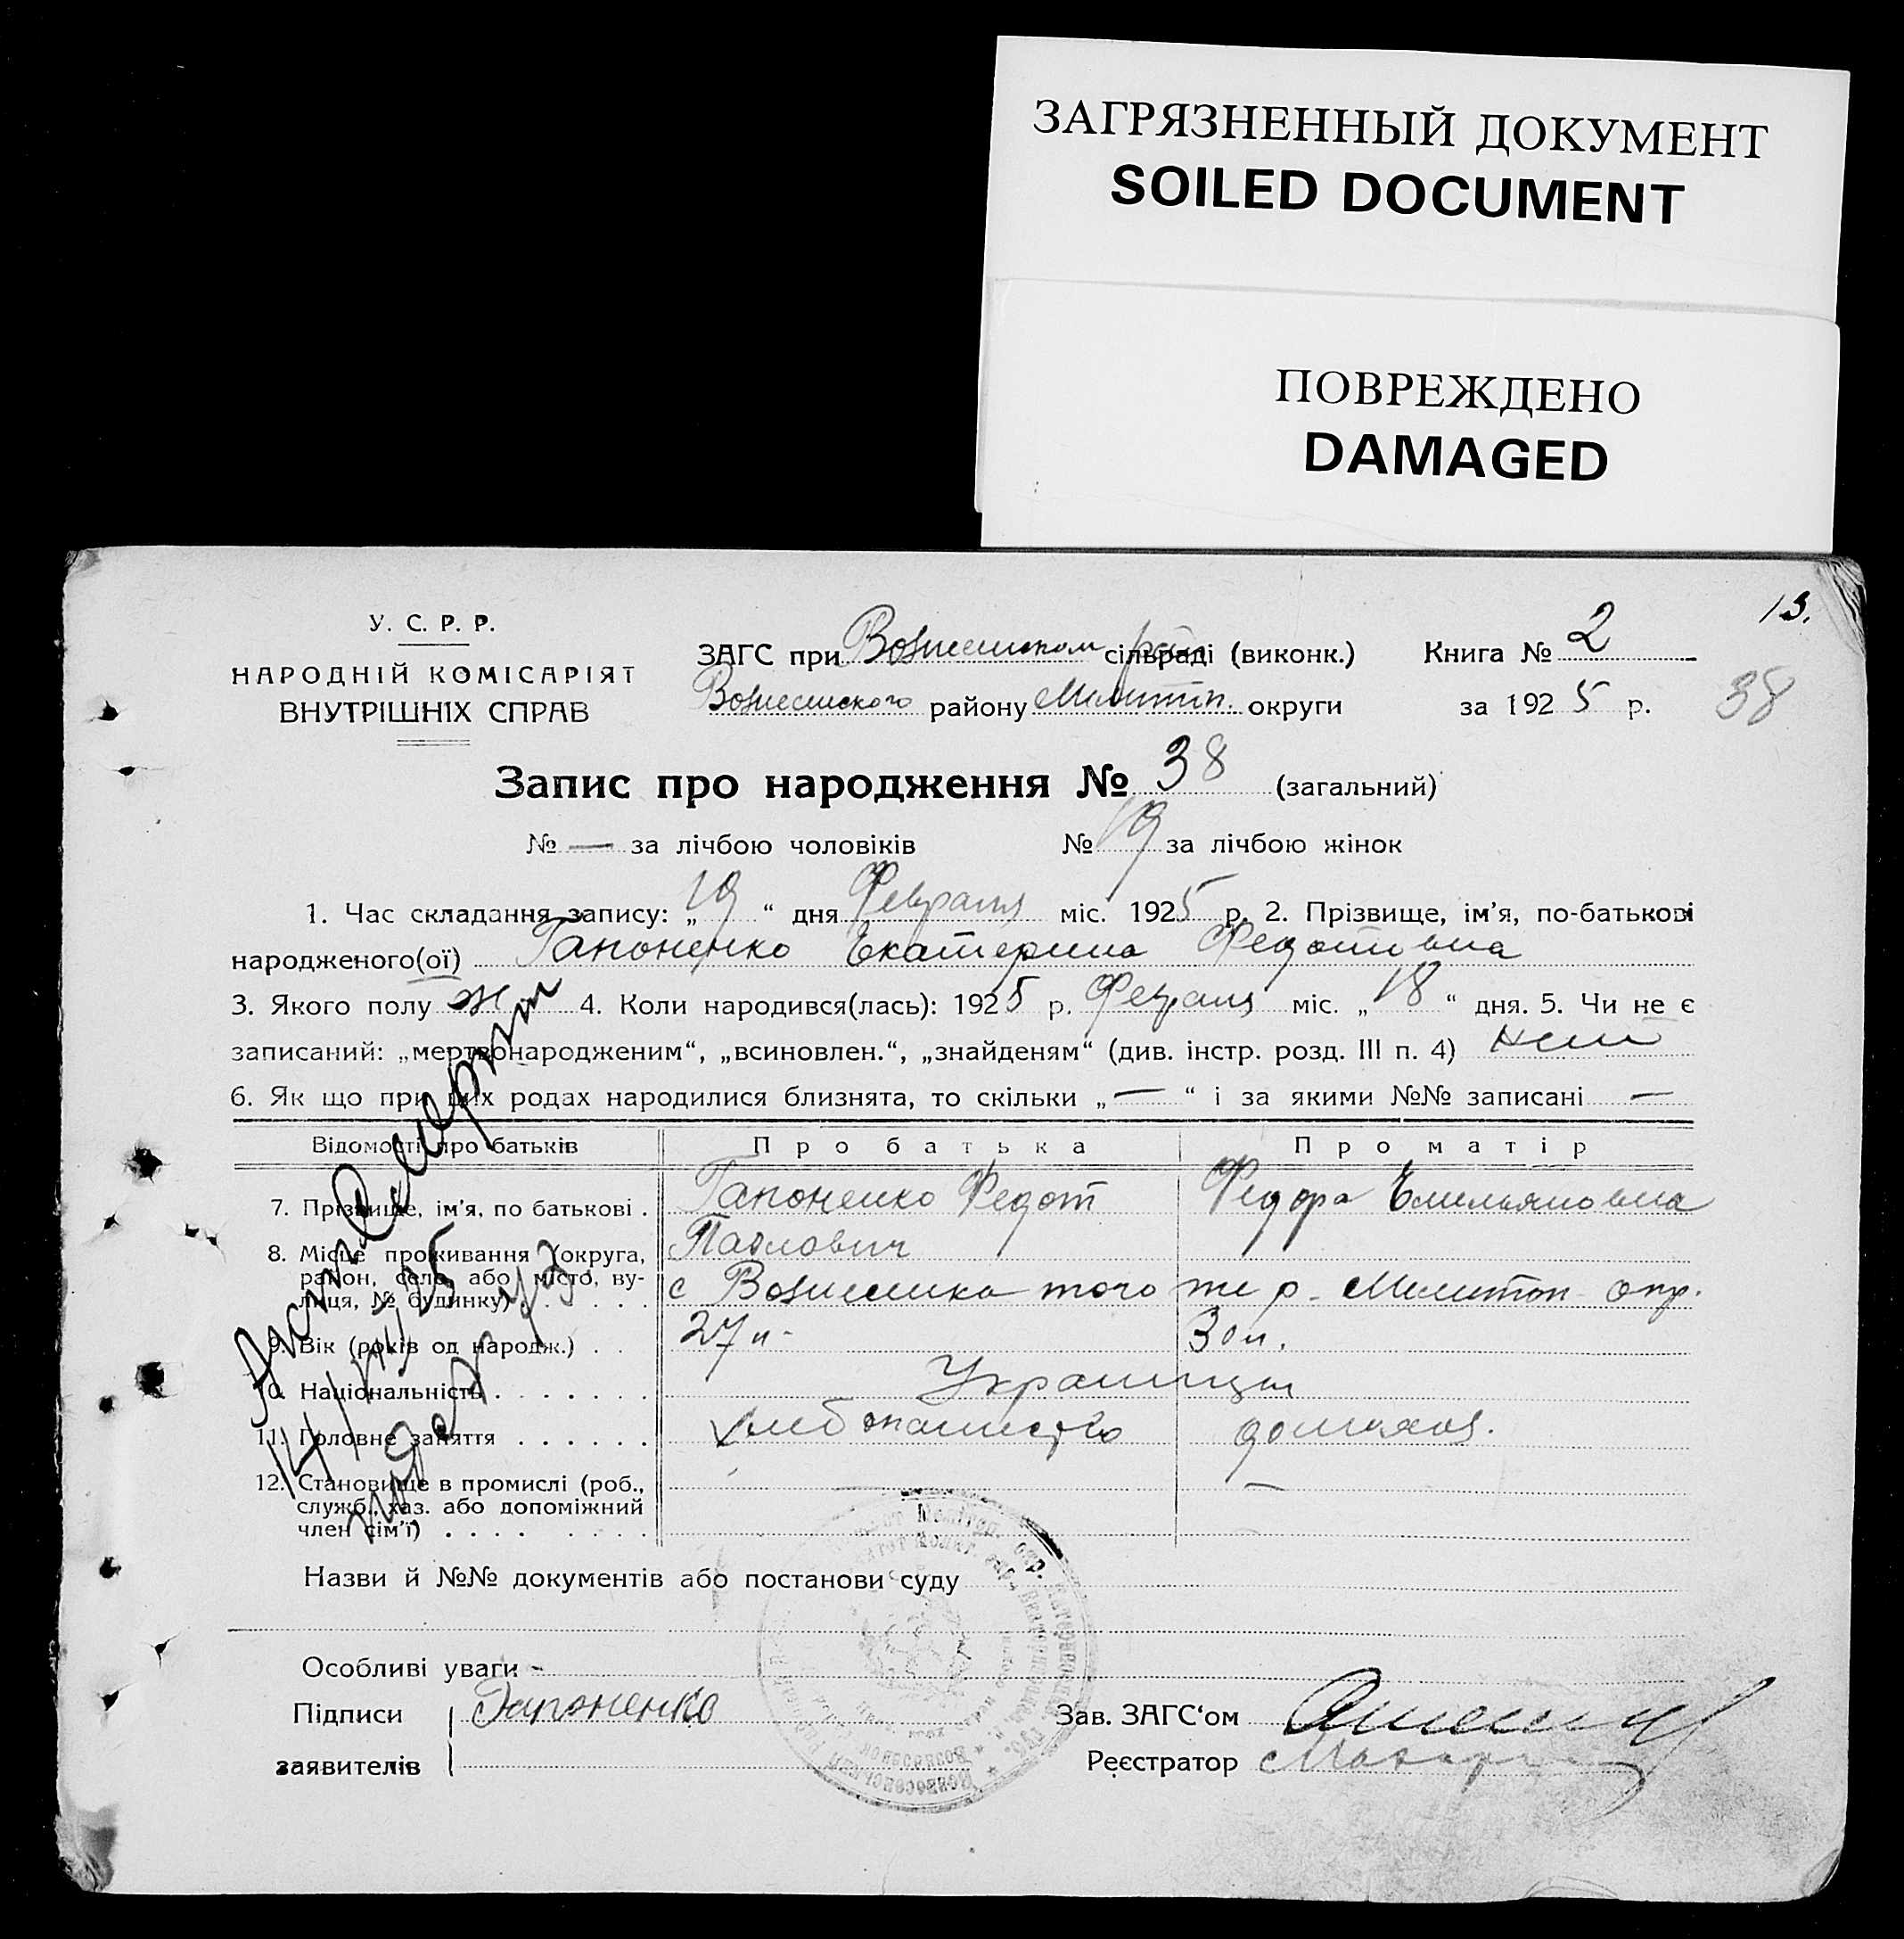 ЗАГРЯЗНЕННЫЙ ДОКУМЕНТ
SOILED DOCUMENT
ПОВРЕЖДЕНО
DAMAGED
13.
У. С. Р. Р.
НАРОДНІЙ КОМІСАРІЯТ
ВНУТРІШНІХ СПРАВ
ЗАГС при Вознесенском рай сільраді (виконк.) Книга № 2
Вознесенского району Мелитоп. округи за 1925 р. 38
Запис про народження № 38 (загальний)
№ — за лічбою чоловіків № 19 за лічбою жінок
1. Час складання запису: „19“ дня Февраля міс. 1925 р. 2. Прізвище, ім’я, по-батькові
народженого(ої) Гапоненко Екатерина Федотовна
3. Якого полу ж 4. Коли народився(лась): 1925 р. Февраля міс. „18“ дня. 5. Чи не є
записаний: „мертвонародженим“, „всиновлен.“, „знайденям“ (див. інстр. розд. III п. 4) нет
6. Як що при цих родах народилися близнята, то скільки „—“ і за якими №№ записані —
Відомості про батьків Про батька Про матір
7. Прізвище, ім’я, по батькові . Гапоненко Федот Федора Емельяновна
Павлович
8. Місце проживання (округа, район, село, або місто, вулиця, № будинку) . . . . . . с Вознесенка того же р. Мелитоп. окр.
9. Вік (років од народж.) . . 27 л. 30 л.
10. Національність . . . . . . . Украинцы
11. Головне заняття . . . . . . хлебопашество домашняя.
12. Становище в промислі (роб., —
служб., хаз. або допоміжний
член сім’ї) . . . . . . . .
Акт Смерти
Назви й №№ документів або постанови суду
Особливі уваги -
Підписи Гапоненко Зав. ЗАГС‘ом
заявителів Реєстратор